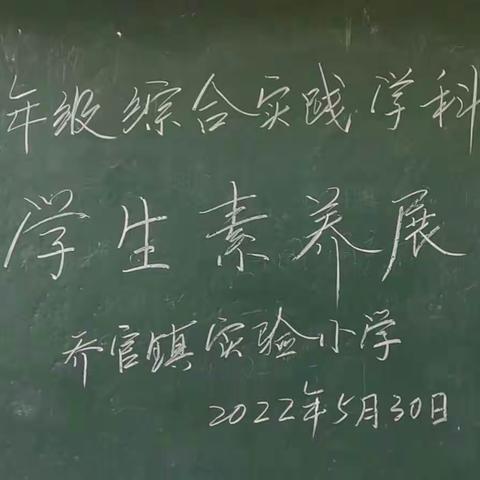 年级综合实践学科
学生素养展
乔官镇实验小学
2022年5月30日